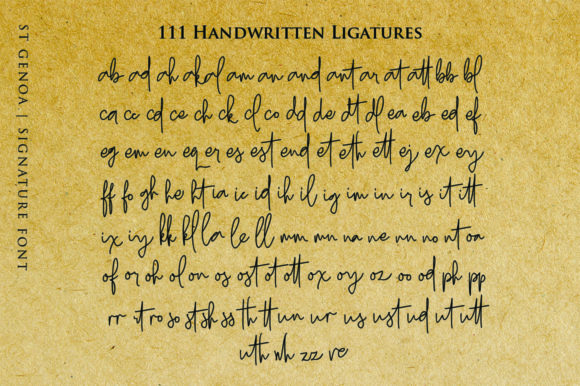 111 HANDWRITTEN LIGATURES
ST GENOA | SIGNATURE FONT
ab ad ah ak al am an and ant ar at att bb bl
ca cc cd ce ch ck cl co dd de dt dl ea eb ed ef
eg em en eq er es est end et eth ett ej ex ey
ff fo gh he ht ia ic id ih il ig im in ir is it itt
ix iy kk kl la le ll mm mn na ne nn no nt oa
of or oh ol on os ost ot ott ox oy oz oo od ph pp
rr rt ro so st sh ss th tt un ur us ust ud ut utt
uth wh zz re